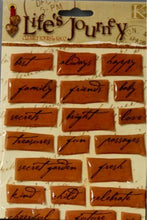 Life's Journey
K
best always happy
family friends baby
secrets bright love
treasures fun passages
secret garden fresh
kind child celebrate
future